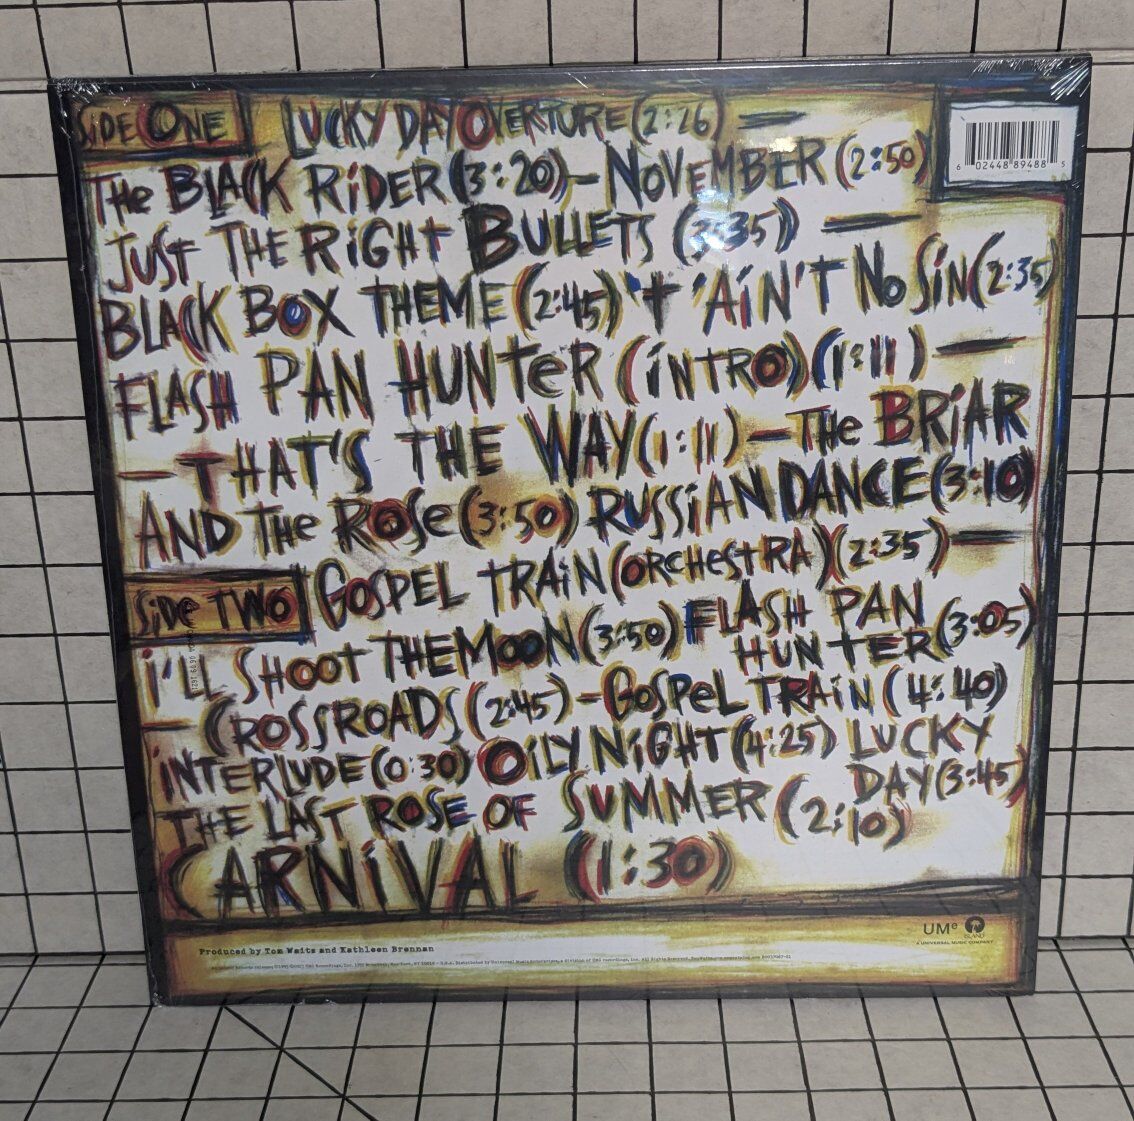 SiDE ONE LUCKY DAY OVERTURE (2:26) —
THe BLACK RiDER (3:20) – NOVEMBER (2:50)
JUST THE RiGHT BULLETS (3:35) —
BLACK BOX THEME (2:45) 'T 'AiN'T No SiN (2:35)
FLASH PAN HUNTeR (iNTRO) (1:11) —
– THAT'S THE WAY (1:11) – THe BRiAR
AND THe ROSe (3:50) RUSSiAN DANCE (3:10)
SiDe TWO GOSPEL TRAiN (ORCHeSTRA) (2:35) —
i'LL SHOOT THE MOON (3:50) FLASH PAN HUNTER (3:05)
– CROSSROADS (2:45) – GOSPeL TRAiN (4:40)
iNTERLUDE (0:30) OiLY NiGHT (4:25) LUCKY DAY (3:45)
THE LAST ROSE OF SUMMER (2:10)
CARNiVAL (1:30)
6 02448 89488 5
UMe
ISLAND
A UNIVERSAL MUSIC COMPANY
Produced by Tom Waits and Kathleen Brennan